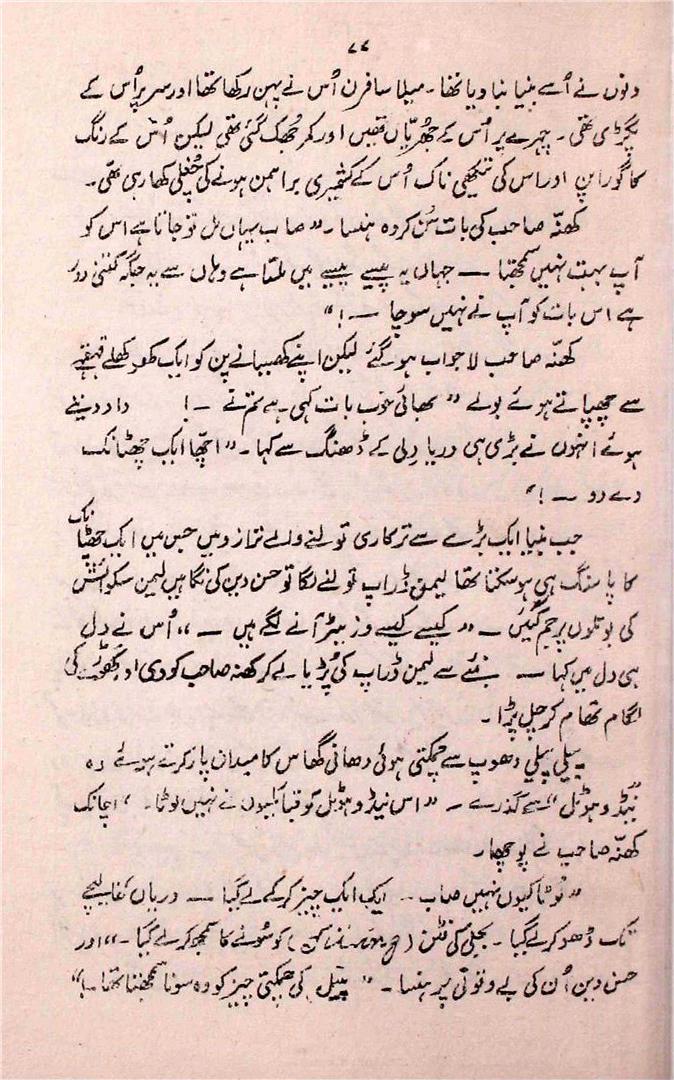 ۷۷
دنوں نے اُسے بنیا بنا دیا تھا۔ میلا سا فرن اُس نے پہن رکھا تھا اور سر پر اُس کے
پگڑی تھی۔ چہرے پر اُس کے جھریاں تھیں اور کمر جھک گئی تھی لیکن اُس کے رنگ
کا گورا پن اور اس کی تیکھی ناک اُس کے کشمیری براہمن ہونے کی چغلی کھا رہی تھی۔
کھنّہ صاحب کی بات سُن کر وہ ہنسا۔ "صاب یہاں مل تو جاتا ہے اس کو
آپ بہت نہیں سمجھتا — جہاں یہ پیسے پیسے میں ملتا ہے وہاں سے یہ جگہ کتنی دور
ہے اس بات کو آپ نے نہیں سوچا —!"
کھنّہ صاحب لاجواب ہو گئے لیکن اپنے کھسیانے پن کو ایک کھوکھلے قہقہے
سے چھپاتے ہوئے بولے "بھائی خوب بات کہی ہے تم نے —! داد دیتے
ہوئے انہوں نے بڑی ہی دریا دِلی کے ڈھنگ سے کہا۔ "اچھا ایک چھٹانک
دے دو —!"
جب بنیا ایک بڑے سے ترکاری تولنے والے ترازو میں جس میں ایک چھٹانک
کا پاسنگ ہی ہو سکتا تھا لیمن ڈراپ تولنے لگا تو حسن دین کی نگاہیں لیمن سکوائش
کی بوتلوں پر جم گئیں — "کیسے کیسے وزیٹر آنے لگے ہیں —" اُس نے دِل
ہی دل میں کہا — بنئے سے لیمن ڈراپ کی پُڑیا لے کر کھنہ صاحب کو دی اور گھوڑے کی
لگام تھام کر چل پڑا۔
پیلی پیلی دھوپ سے چمکتی ہوئی دھانی گھاس کا میدان پار کرتے ہوئے وہ
نیڈوہوٹل" سے گذرے — "اس نیڈوہوٹل کو قبائلیوں نے نہیں لوٹا۔" اچانک
کھنّہ صاحب نے پوچھا۔
"لوٹا کیوں نہیں صاب۔ ایک ایک چیز کر کے لے گیا — دریاں غالیچے
تک ڈھو کر لے گیا۔ بجلی کی بٹن ( ) کو سونے کا سمجھ کر لے گیا۔" اور
حسن دین اُن کی بے وقوفی پر ہنسا۔ "پیتل کی چمکتی چیز کو وہ سونا سمجھتا تھا۔!"